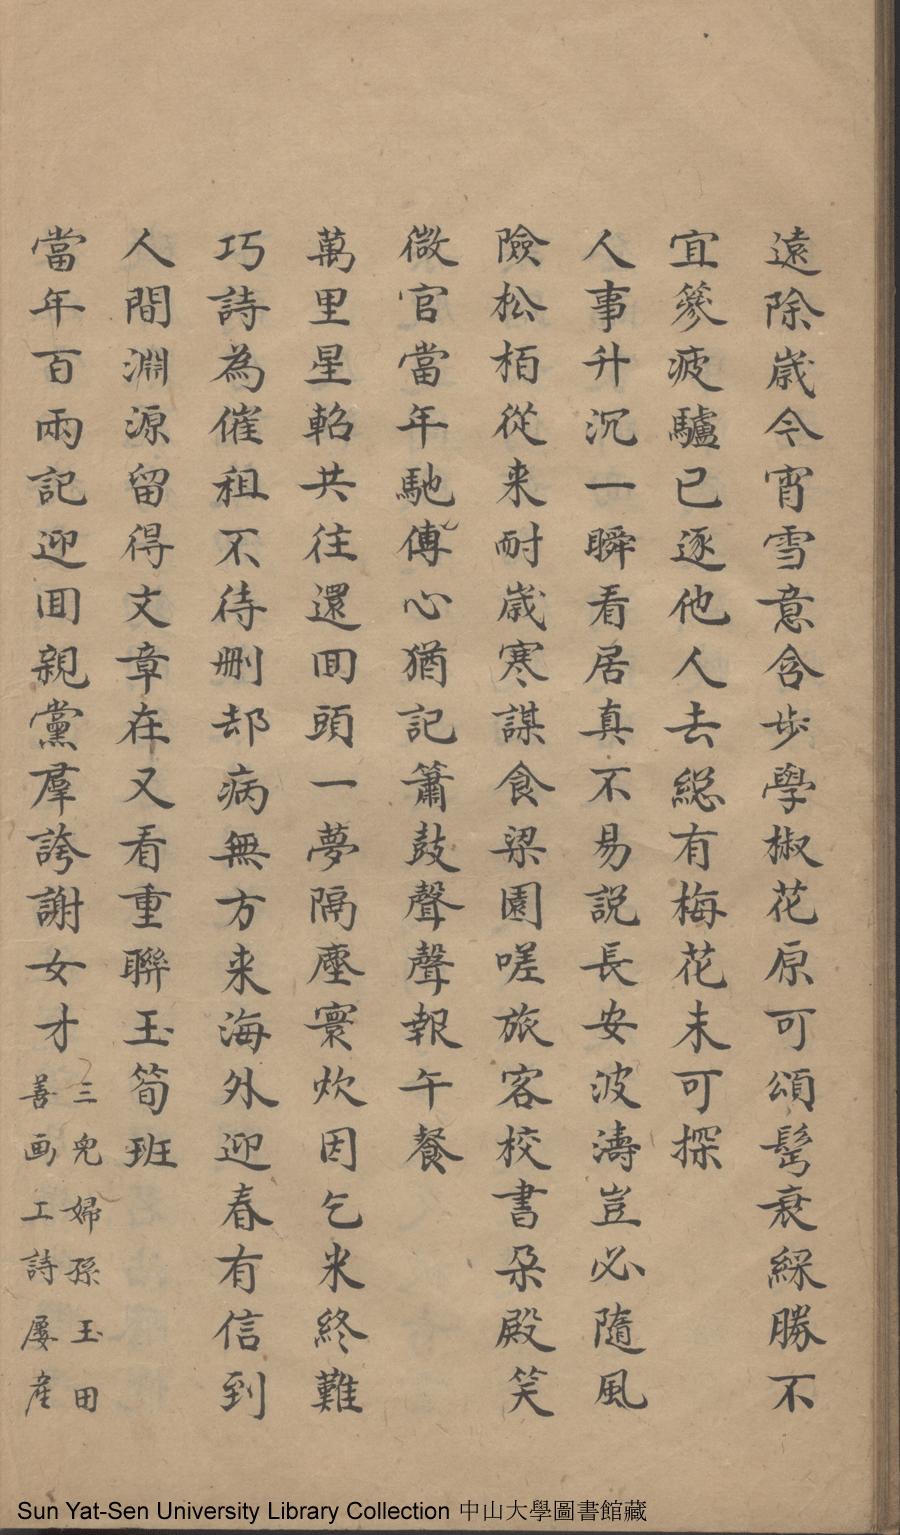 遠除歲今宵雪意含步學椒花原可頌髩衰綵勝不
宜篸疲驢已逐他人去総有梅花未可探
人事升沉一瞬看居真不易説長安波濤豈必隨風
險松栢從来耐歲寒謀食梁園嗟旅客校書朶殿笑
微官當年馳傳心猶記簫鼓聲聲報午餐
萬里星軺共往還囬頭一夢隔塵寰炊因乞米終難
巧詩為催租不待刪却病無方来海外迎春有信到
人間淵源留得文章在又看重聯玉筍班
當年百兩記迎囬親黨羣誇謝女才
三兒婦孫玉田
善画工詩屡産
Sun Yat-Sen University Library Collection 中山大學圖書館藏